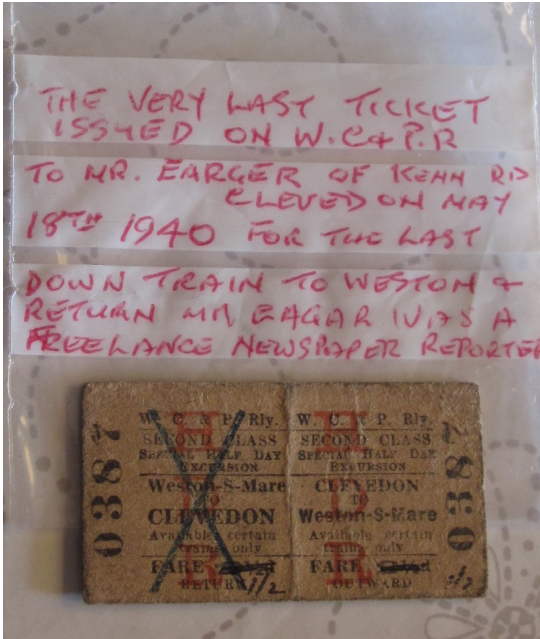 THE VERY LAST TICKET
ISSUED ON W.C & P.R
TO MR. EARGER OF KENN RD
CLEVEDON MAY
18TH 1940 FOR THE LAST
DOWN TRAIN TO WESTON &
RETURN MR EAGAR WAS A
FREELANCE NEWSPAPER REPORTER
0387
W. C. & P. Rly.
SECOND CLASS
SPECIAL HALF DAY
EXCURSION
Weston-S-Mare
TO
CLEVEDON
Available certain
trains only
FARE
RETURN 1/2
H
D
R
W. C. & P. Rly.
SECOND CLASS
SPECIAL HALF DAY
EXCURSION
CLEVEDON
TO
Weston-S-Mare
Available certain
trains only
FARE
OUTWARD
H
D
R
0387